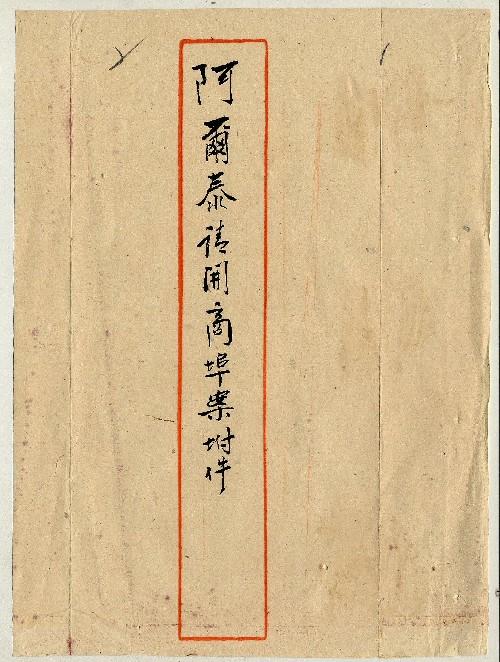 阿爾泰請開商埠案附件